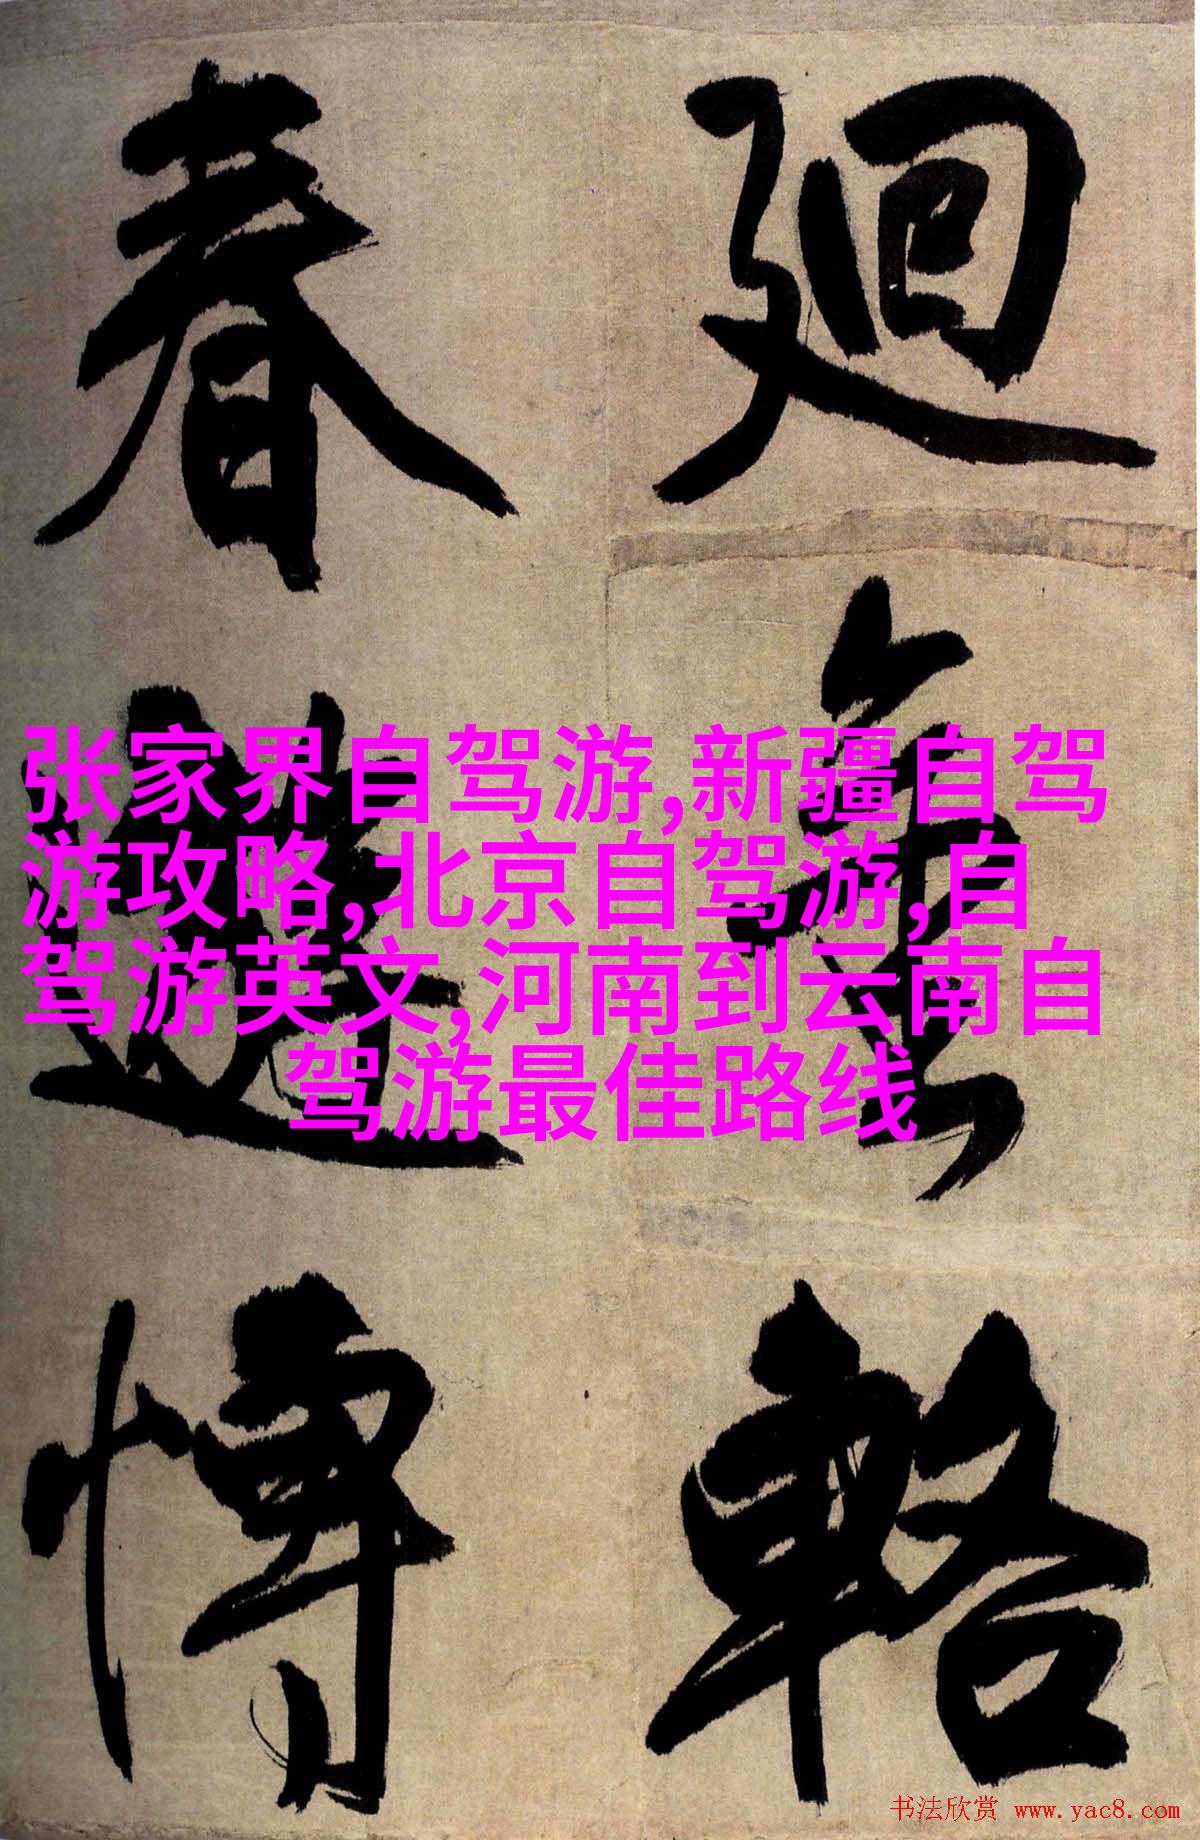 迴
輅
春
愽
张家界自驾游,新疆自驾
游攻略,北京自驾游,自
驾游英文,河南到云南自
驾游最佳路线
书法欣赏 www.yac8.com